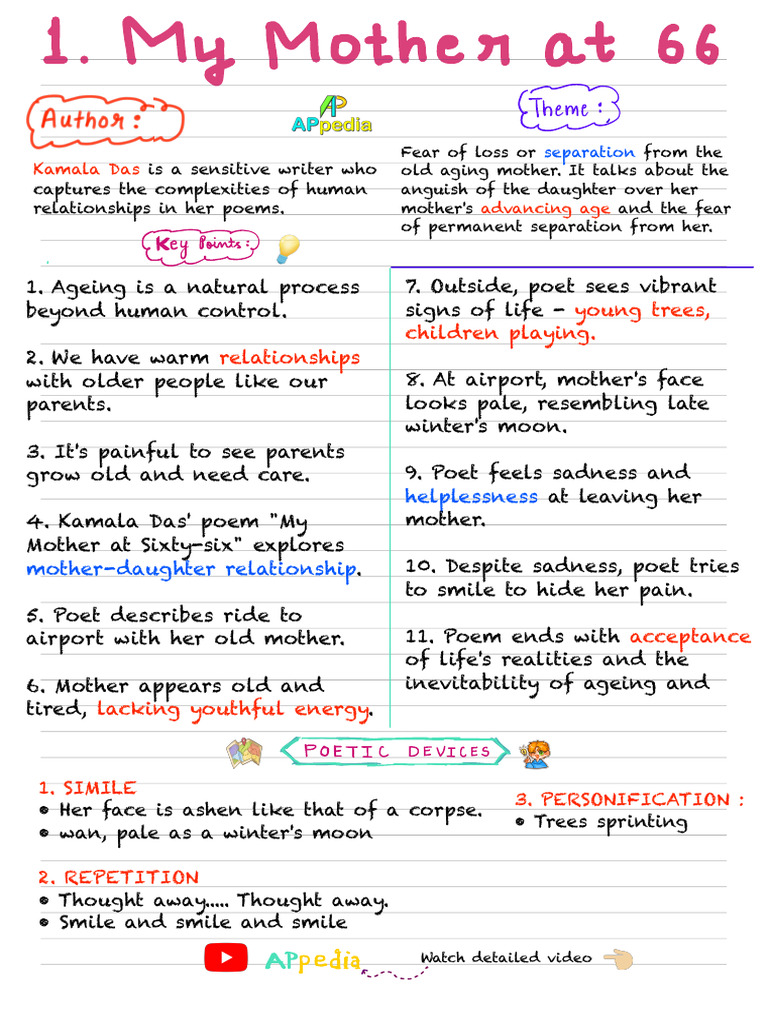 1. My Mother at 66
Author:
AP
APpedia
Theme:
Kamala Das is a sensitive writer who
captures the complexities of human
relationships in her poems.
Fear of loss or separation from the
old aging mother. It talks about the
anguish of the daughter over her
mother's advancing age and the fear
of permanent separation from her.
Key Points:
1. Ageing is a natural process
beyond human control.
2. We have warm relationships
with older people like our
parents.
3. It's painful to see parents
grow old and need care.
4. Kamala Das' poem "My
Mother at Sixty-six" explores
mother-daughter relationship.
5. Poet describes ride to
airport with her old mother.
6. Mother appears old and
tired, lacking youthful energy.
7. Outside, poet sees vibrant
signs of life - young trees,
children playing.
8. At airport, mother's face
looks pale, resembling late
winter's moon.
9. Poet feels sadness and
helplessness at leaving her
mother.
10. Despite sadness, poet tries
to smile to hide her pain.
11. Poem ends with acceptance
of life's realities and the
inevitability of ageing and
POETIC DEVICES
1. SIMILE
• Her face is ashen like that of a corpse.
• wan, pale as a winter's moon
2. REPETITION
• Thought away..... Thought away.
• Smile and smile and smile
3. PERSONIFICATION :
• Trees sprinting
APpedia
Watch detailed video